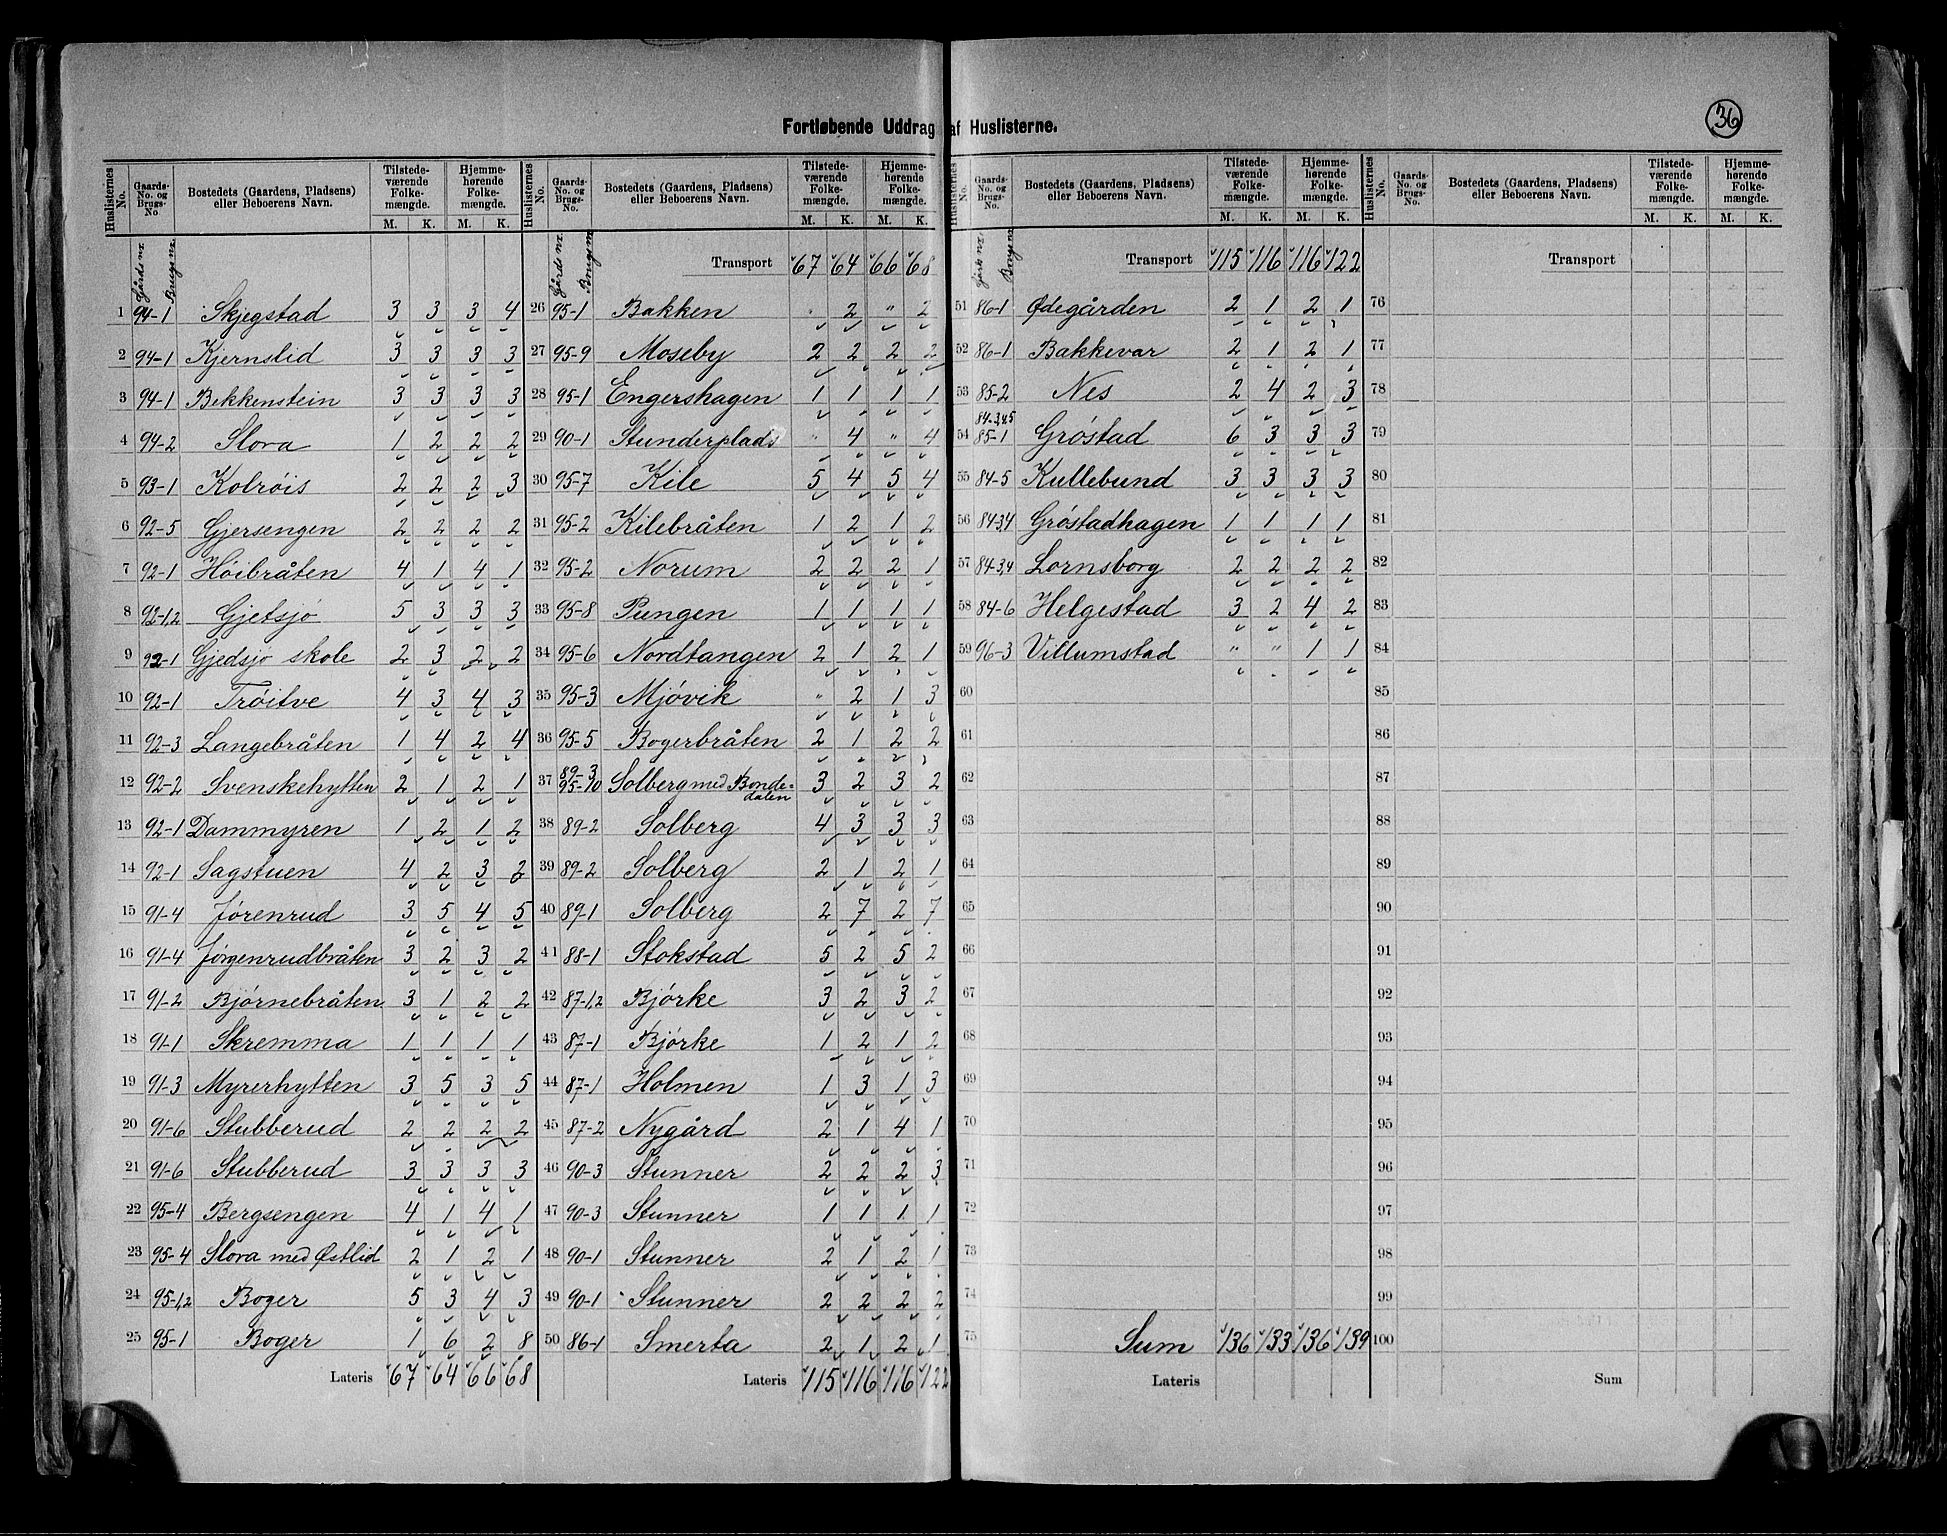 36
Fortløbende Uddrag af Huslisterne.
Huslisternes No. Gaards-No. og Brugs-No Bostedets (Gaardens, Pladsens) eller Beboerens Navn. Tilstedeværende Folkemængde. M. K. Hjemmehørende Folkemængde. M. K.
Gårds nr. Brugs nr.
1 94-1 Skjegstad 3 3 3 4
2 94-1 Kjernslid 3 3 3 3
3 94-1 Bekkenstein 3 3 3 3
4 94-2 Slora 1 2 2 2
5 93-1 Kolrøis 2 2 2 3
6 92-5 Gjersengen 2 2 2 2
7 92-1 Høibråten 4 1 4 1
8 92-1,2 Gjetsjø 5 3 3 3
9 92-1 Gjedsjø skole 2 3 2 2
10 92-1 Trøitve 4 3 4 3
11 92-3 Langebråten 1 4 2 4
12 92-2 Svenskehytten 2 1 2 1
13 92-1 Dammyren 1 2 1 2
14 92-1 Sagstuen 4 2 3 2
15 91-4 Jørenrud 3 5 4 5
16 91-4 Jørgenrudbråten 3 2 3 2
17 91-2 Bjørnebråten 3 1 2 2
18 91-1 Skremma 1 1 1 1
19 91-3 Myrerhytten 3 5 3 5
20 91-6 Stubberud 2 2 2 2
21 91-6 Stubberud 3 3 3 3
22 95-4 Bergsengen 4 1 4 1
23 95-4 Slora med Østlid 2 1 2 1
24 95-1,2 Boger 5 3 4 3
25 95-1 Boger 1 6 2 8
Lateris 67 64 66 68
Huslisternes No. Gaards-No. og Brugs-No. Bostedets (Gaardens, Pladsens) eller Beboerens Navn. Tilstedeværende Folkemængde. M. K. Hjemmehørende Folkemængde. M. K.
Gårds nr. Brugs nr.
Transport 67 64 66 68
26 95-1 Bakken " 2 " 2
27 95-9 Moseby 2 2 2 2
28 95-1 Engershagen 1 1 1 1
29 90-1 Stunderplads " 4 " 4
30 95-7 Kile 5 4 5 4
31 95-2 Kilebråten 1 2 1 2
32 95-2 Norum 2 2 2 1
33 95-8 Pungen 1 1 1 1
34 95-6 Nordtangen 2 1 2 1
35 95-3 Mjøvik " 2 1 3
36 95-5 Bogerbråten 2 1 2 2
37 89-3 95-10 Solberg med Bonde-dalen 3 2 3 2
38 89-2 Solberg 4 3 3 3
39 89-2 Solberg 2 1 2 1
40 89-1 Solberg 2 7 2 7
41 88-1 Stokstad 5 2 5 2
42 87-1,2 Bjørke 3 2 3 2
43 87-1 Bjørke 1 2 1 2
44 87-1 Holmen 1 3 1 3
45 87-2 Nygård 2 1 4 1
46 90-3 Stunner 2 2 2 3
47 90-3 Stunner 1 1 1 1
48 90-1 Stunner 2 1 2 1
49 90-1 Stunner 2 2 2 2
50 86-1 Smerta 2 1 2 1
Lateris 115 116 116 122
Huslisternes No. Gaards-No. og Brugs-No. Bostedets (Gaardens, Pladsens) eller Beboerens Navn. Tilstedeværende Folkemængde. M. K. Hjemmehørende Folkemængde. M. K.
Gårds nr. Brugs nr.
Transport 115 116 116 122
51 86-1 Ødegården 2 1 2 1
52 86-1 Bakkevar 2 1 2 1
53 85-2 Nes 2 4 2 3
54 84-3,4,5 85-1 Grøstad 6 3 3 3
55 84-5 Kullebund 3 3 3 3
56 84-3,4 Grøstadhagen 1 1 1 1
57 84-3,4 Lornsborg 2 2 2 2
58 84-6 Helgestad 3 2 4 2
59 96-3 Villumstad " " 1 1
60
61
62
63
64
65
66
67
68
69
70
71
72
73
74
75 Sum 136 133 136 139
Lateris
Huslisternes No. Gaards-No. og Brugs-No. Bostedets (Gaardens, Pladsens) eller Beboerens Navn. Tilstedeværende Folkemængde. M. K. Hjemmehørende Folkemængde. M. K.
Transport
76
77
78
79
80
81
82
83
84
85
86
87
88
89
90
91
92
93
94
95
96
97
98
99
100
Sum